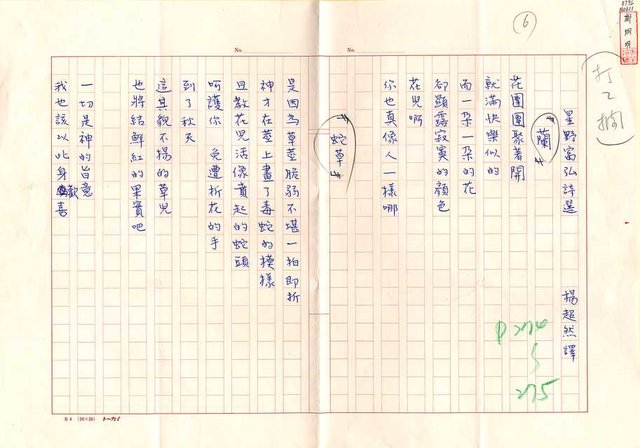 (6)
星野富弘詩選 楊超然譯
蘭
花團團聚著開
就滿快樂似的
而一朵一朵的花
卻顯露寂寞的顏色
花兒啊
你也真像人一樣哪
蛇草
是因為草莖脆弱不堪一拍即折
神才在莖上畫了毒蛇的模樣
且教花兒活像賁起的蛇頭
呵護你 免遭折花的手
到了秋天
這其貌不揚的草兒
也將結鮮紅的果實吧
一切是神的旨意
我也該以此身歡喜
P 274
275
No.
No.
B4 (20×20)